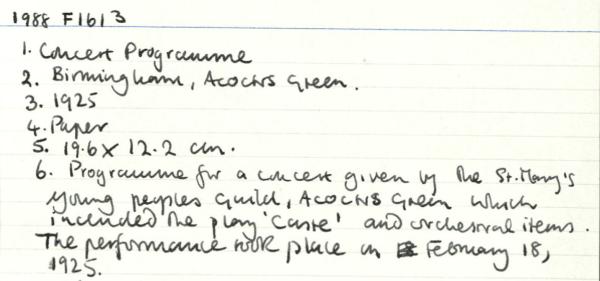 1988 F1613
1. Concert Programme
2. Birmingham, Acocks Green.
3. 1925
4. Paper
5. 19.6 x 12.2 cm.
6. Programme for a concert given by the St. Mary's
young peoples Guild, Acocks Green which
included the play 'Caste' and orchestral items.
The performance took place on February 18,
1925.